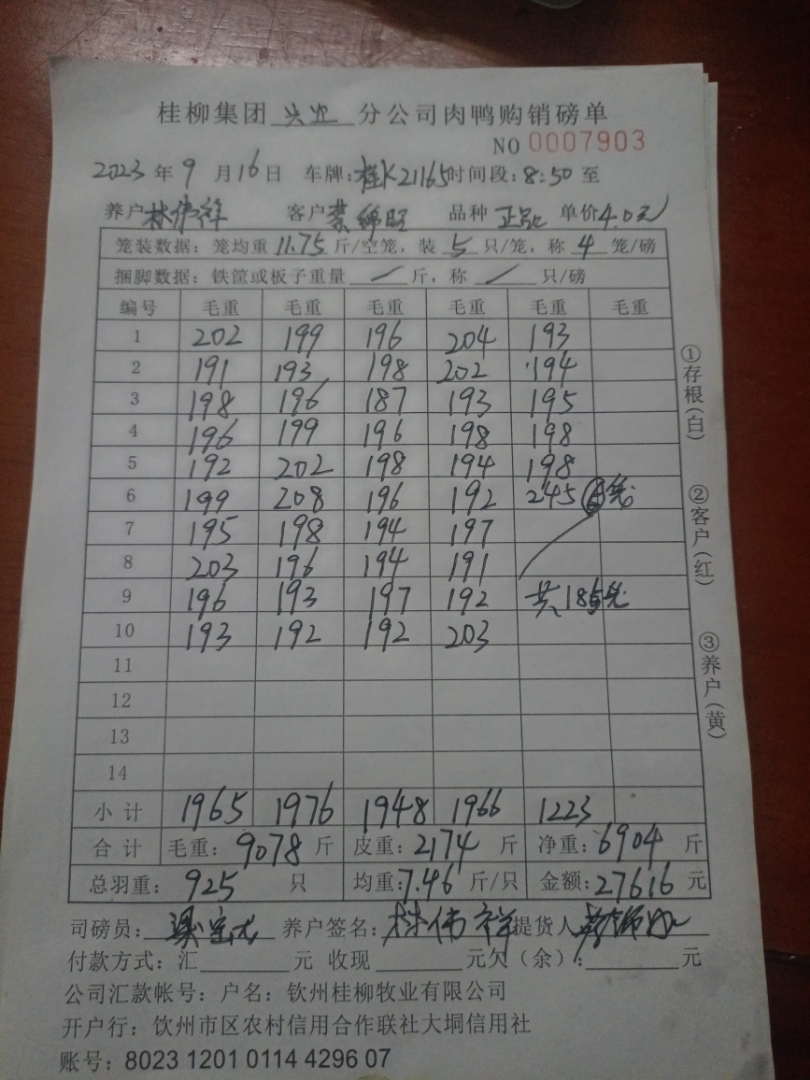 桂柳集团 分公司肉鸭购销磅单
NO 0007903
2023 年 9 月 16 日 车牌:桂K21165 时间段:8:50 至
养户 林伟祥 客户 品种 正品 单价 4.0元
笼装数据:笼均重 11.75 斤/空笼,装 5 只/笼,称 4 笼/磅
捆脚数据:铁筐或板子重量 / 斤,称 / 只/磅
编号 毛重 毛重 毛重 毛重 毛重 毛重
1 202 199 196 204 193
2 191 193 198 202 194
3 198 196 187 193 195
4 196 199 196 198 198
5 192 202 198 194 198
6 199 208 196 192 245 笼
7 195 198 194 197
8 203 196 194 191
9 196 193 197 192 共185笼
10 193 192 192 203
11
12
13
14
小计 1965 1976 1948 1966 1223
合计 毛重:9078 斤 皮重:2174 斤 净重:6904 斤
总羽重:925 只 均重:7.46 斤/只 金额:27616 元
司磅员: 养户签名:林伟祥 提货人
付款方式:汇 元 收现 元欠(余): 元
公司汇款帐号:户名:钦州桂柳牧业有限公司
开户行:钦州市区农村信用合作联社大垌信用社
账号:8023 1201 0114 4296 07
①存根(白)
②客户(红)
③养户(黄)